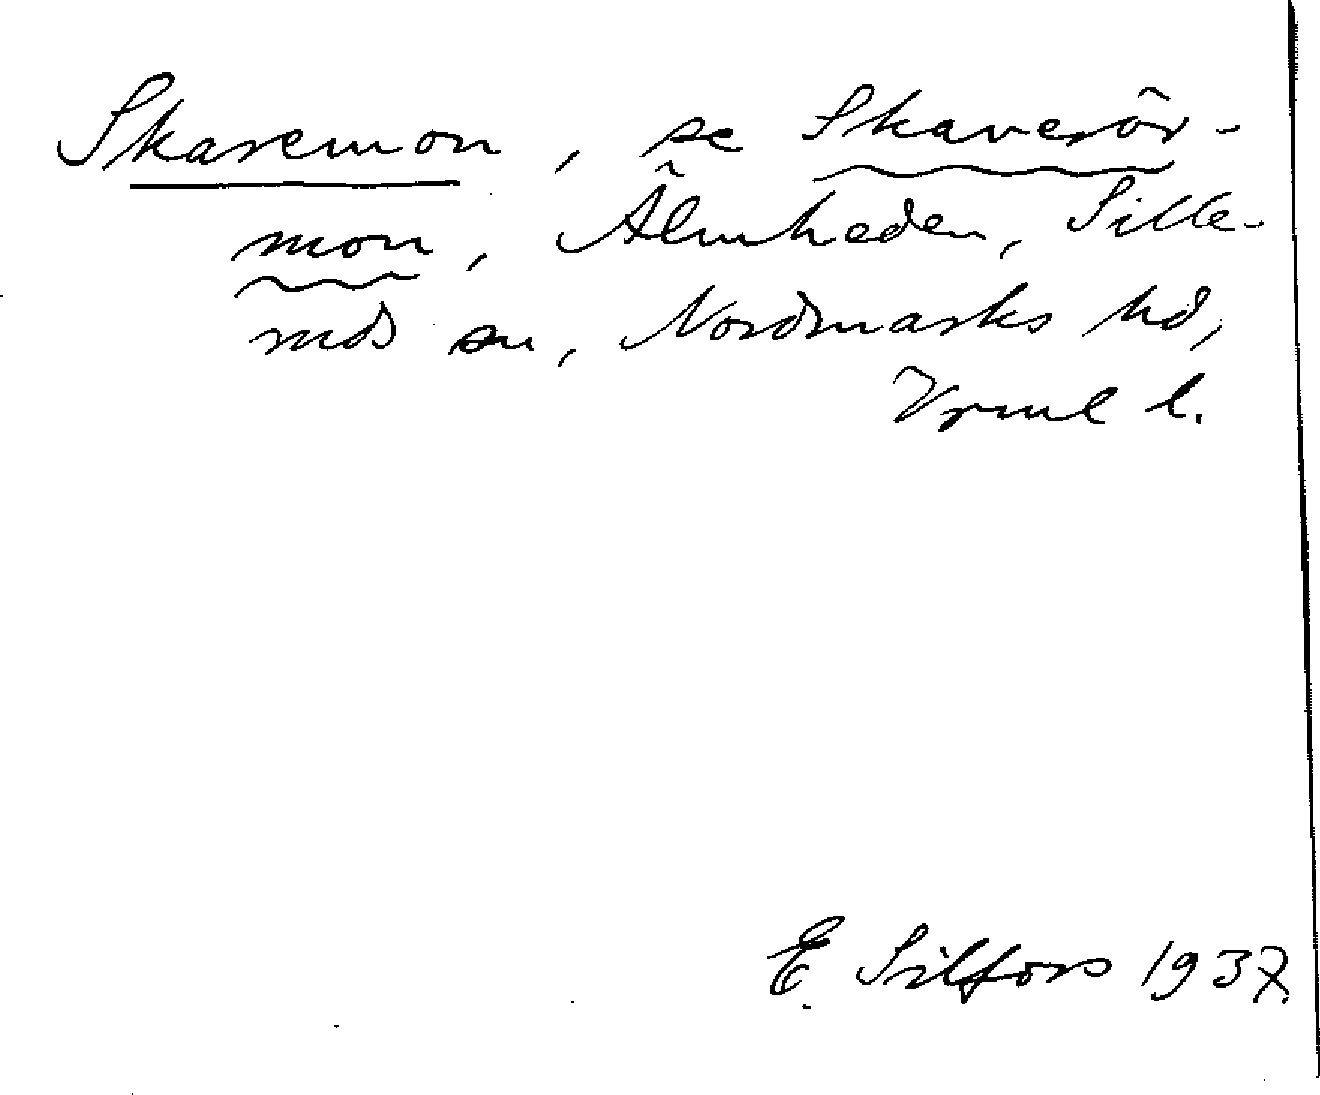 Skaremon, se Skaverör-
mon, Älmheden, Sille-
ruds sn, Nordmarks hd,
Vrml l.
E. Silfors 1937